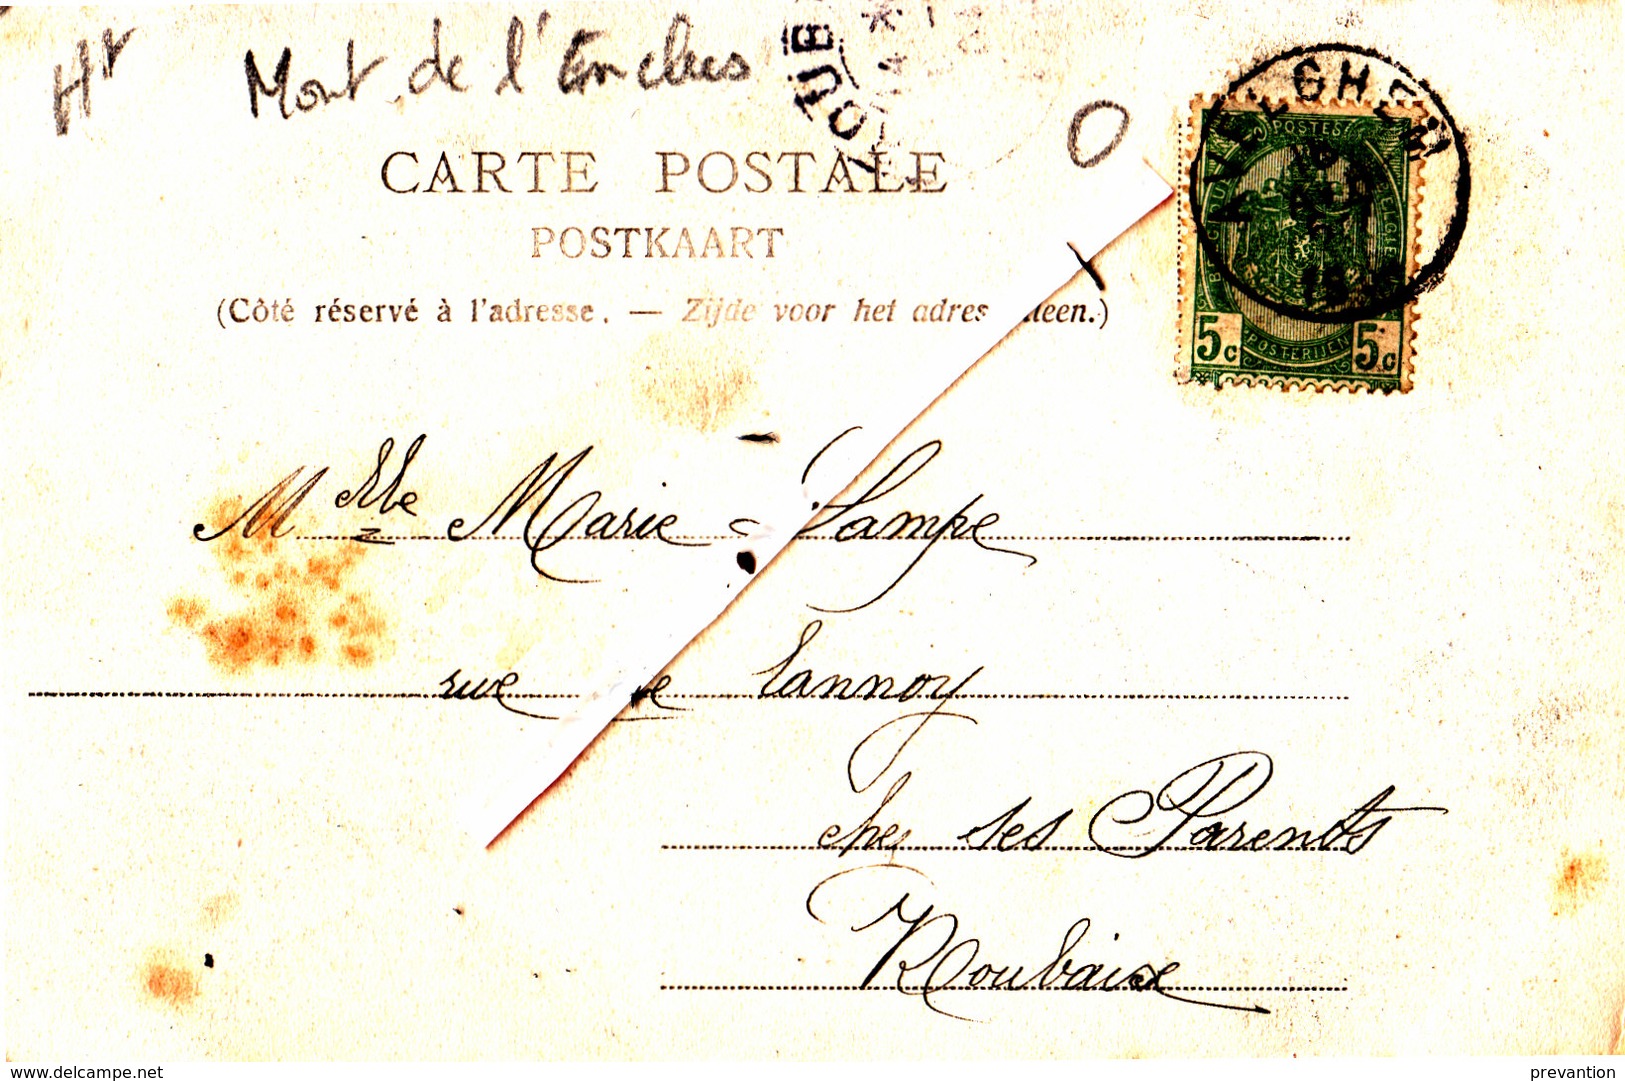 Ht Mont de l'Enclus
CARTE POSTALE
POSTKAART
(Côté réservé à l'adresse. — Zijde voor het adres alleen.)
AVELGHEM
POSTES
5c POSTERIJEN 5c
Melle Marie Lampe
rue de Lannoy
chez ses Parents
Roubaix
www.delcampe.net
prevantion